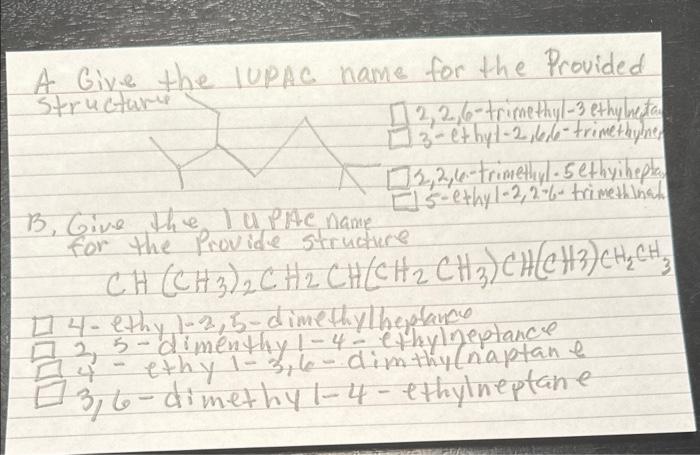 A Give the IUPAC name for the Provided
Structure
□ 2,2,6-trimethyl-3 ethylhepta
□ 3-ethyl-2,6,6-trimethylhep
□ 2,2,6-trimethyl-5ethyihepta
□ 5-ethyl-2,2-6-trimethlnah
B, Give the IUPAC name
for the Provide structure
CH(CH3)2CH2CH(CH2CH3)CH(CH3)CH2CH3
□ 4-ethyl-2,5-dimethylheplance
□ 2,5-dimenthyl-4-ethylneptance
□ 4-ethyl-3,6-dimthylnaptane
□ 3,6-dimethyl-4-ethylneptane